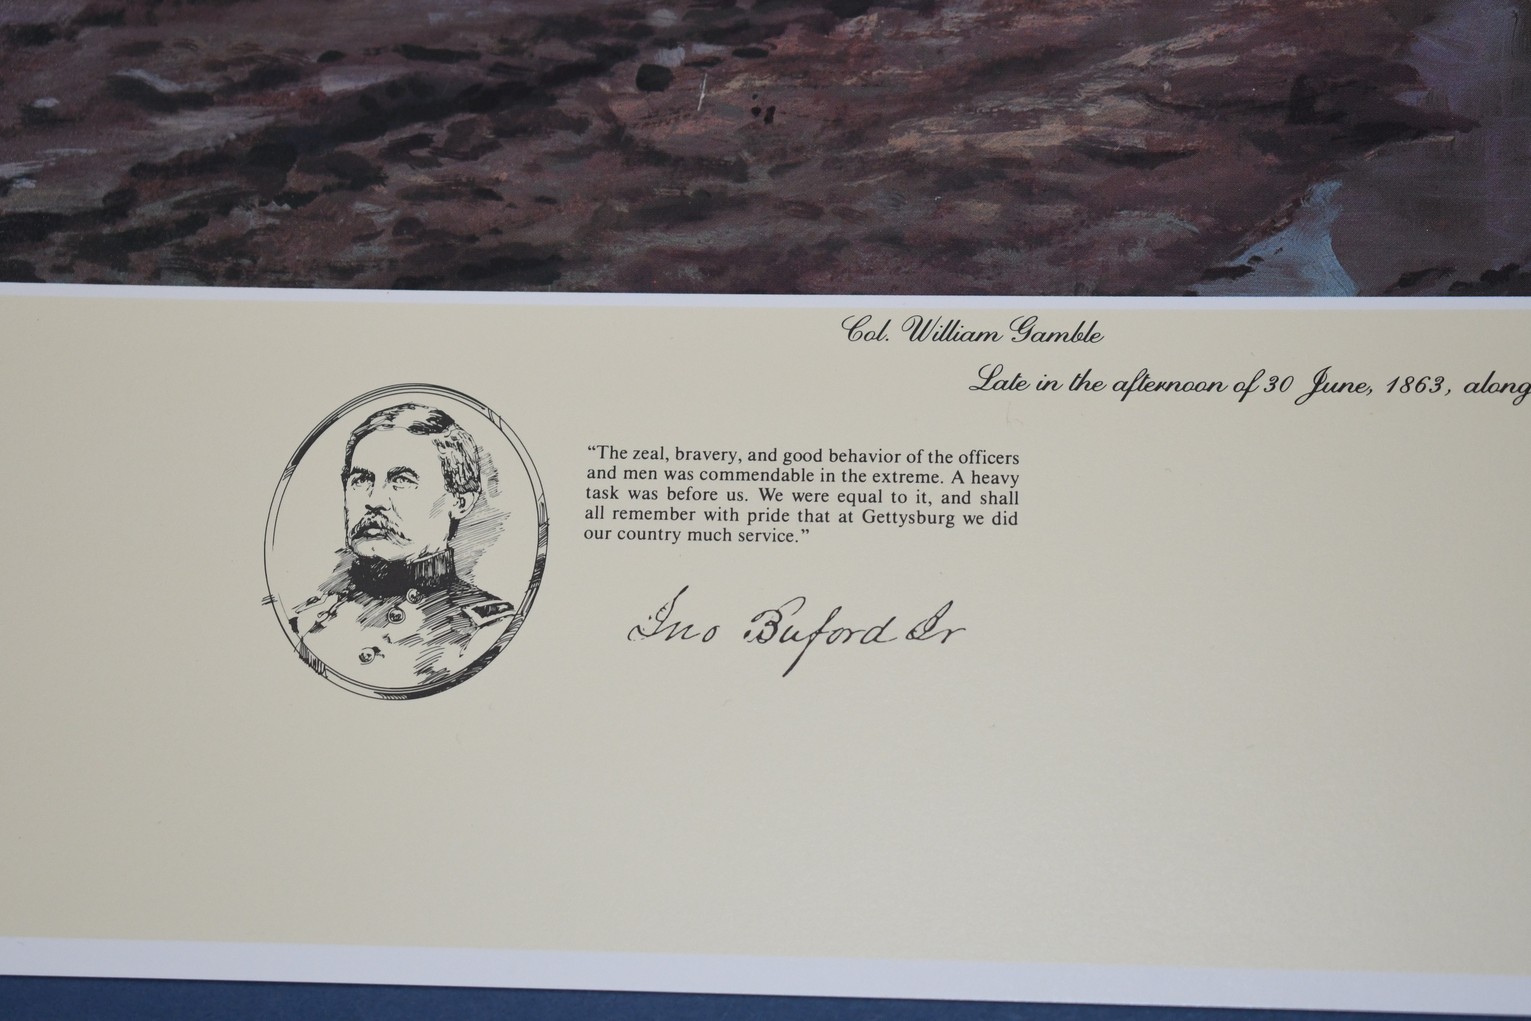 Col. William Gamble
Late in the afternoon of 30 June, 1863, along
“The zeal, bravery, and good behavior of the officers
and men was commendable in the extreme. A heavy
task was before us. We were equal to it, and shall
all remember with pride that at Gettysburg we did
our country much service.”
Jno Buford Jr